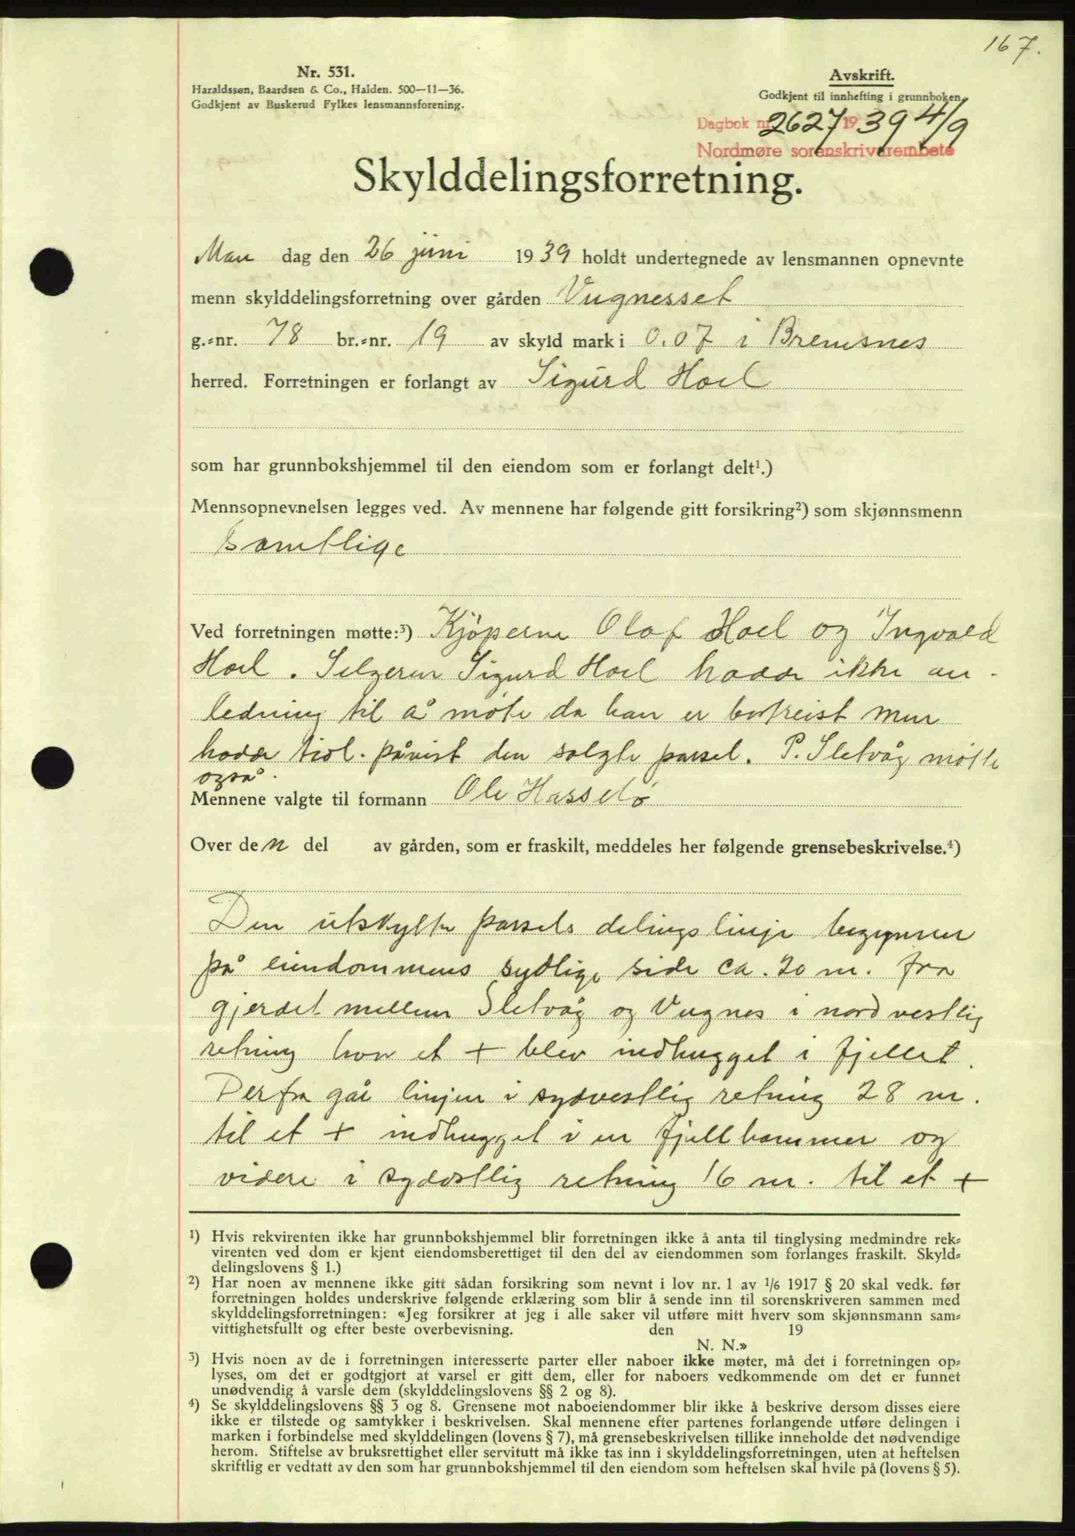 167.
Nr. 531.
Haraldssøn, Baardsen & Co., Halden. 500—11—36.
Godkjent av Buskerud Fylkes lensmannsforening.
Avskrift.
Godkjent til innhefting i grunnboken.
Dagbok nr. 2627 1939 4/9
Nordmøre sorenskriverembete
Skylddelingsforretning.
Man dag den 26 juni 1939 holdt undertegnede av lensmannen opnevnte
menn skylddelingsforretning over gården Vugnesset
g.-nr. 78 br.-nr. 19 av skyld mark i 0.07 i Bremsnes
herred. Forretningen er forlangt av Sigurd Hoel
som har grunnbokshjemmel til den eiendom som er forlangt delt¹.)
Mennsopnevnelsen legges ved. Av mennene har følgende gitt forsikring²) som skjønnsmenn
Samtlige
Ved forretningen møtte:³) Kjøperne Olaf Hoel og Ingvald
Hoel. Selgeren Sigurd Hoel hadde ikke an-
ledning til å møte da han er bortreist men
hadde tidl. påvist den solgte parsel. P. Sletvåg møtte
også.
Mennene valgte til formann Ole Hasselø
Over den del av gården, som er fraskilt, meddeles her følgende grensebeskrivelse.⁴)
Den utskylte parsels delingslinje begynner
på eiendommens sydlige side ca. 20 m. fra
gjerdet mellem Sletvåg og Vugnes i nordvestlig
retning hvor et + blev indhugget i fjellet.
Derfra går linjen i sydvestlig retning 28 m.
til et + indhugget i en fjellhammer og
videre i sydøstlig retning 16 m. til et +
¹) Hvis rekvirenten ikke har grunnbokshjemmel blir forretningen ikke å anta til tinglysing medmindre rek-
virenten ved dom er kjent eiendomsberettiget til den del av eiendommen som forlanges fraskilt. Skyld-
delingslovens § 1.)
²) Har noen av mennene ikke gitt sådan forsikring som nevnt i lov nr. 1 av ¹/6 1917 § 20 skal vedk. før
forretningen holdes underskrive følgende erklæring som blir å sende inn til sorenskriveren sammen med
skylddelingsforretningen: «Jeg forsikrer at jeg i alle saker vil utføre mitt hverv som skjønnsmann sam-
vittighetsfullt og efter beste overbevisning. den 19
N. N.»
³) Hvis noen av de i forretningen interesserte parter eller naboer ikke møter, må det i forretningen op-
lyses, om det er godtgjort at varsel er gitt dem, eller for naboers vedkommende om det er funnet
unødvendig å varsle dem (skylddelingslovens §§ 2 og 8).
⁴) Se skylddelingslovens §§ 3 og 8. Grensene mot naboeiendommer blir ikke å beskrive dersom disses eiere
ikke er tilstede og samtykker i beskrivelsen. Skal mennene efter partenes forlangende utføre delingen i
marken i forbindelse med skylddelingen (lovens § 7), må grensebeskrivelsen tillike inneholde det nødvendige
herom. Stiftelse av bruksrettighet eller servitutt må ikke tas inn i skylddelingsforretningen, uten at heftelsen
skriftlig er vedtatt av den som har grunnbokshjemmel til den eiendom som heftelsen skal hvile på (lovens § 5).